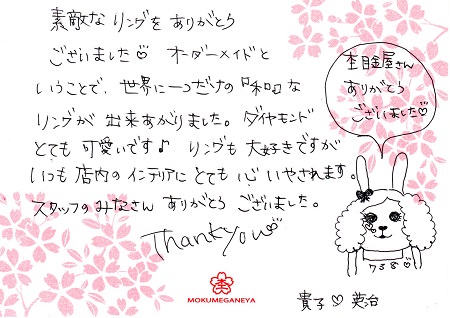 素敵なリングをありがとう
ございました♡ オーダーメイドと
いうことで、世界に一つだけの『和』な
リングが出来あがりました。ダイヤモンド
とても可愛いです♪ リングも大好きですが
いつも店内のインテリアにとても心いやされます。
スタッフのみなさん ありがとうございました。
Thank you♡
杢目金屋さん
ありがとう
ございました♡
貴子♡英治
MOKUMEGANEYA